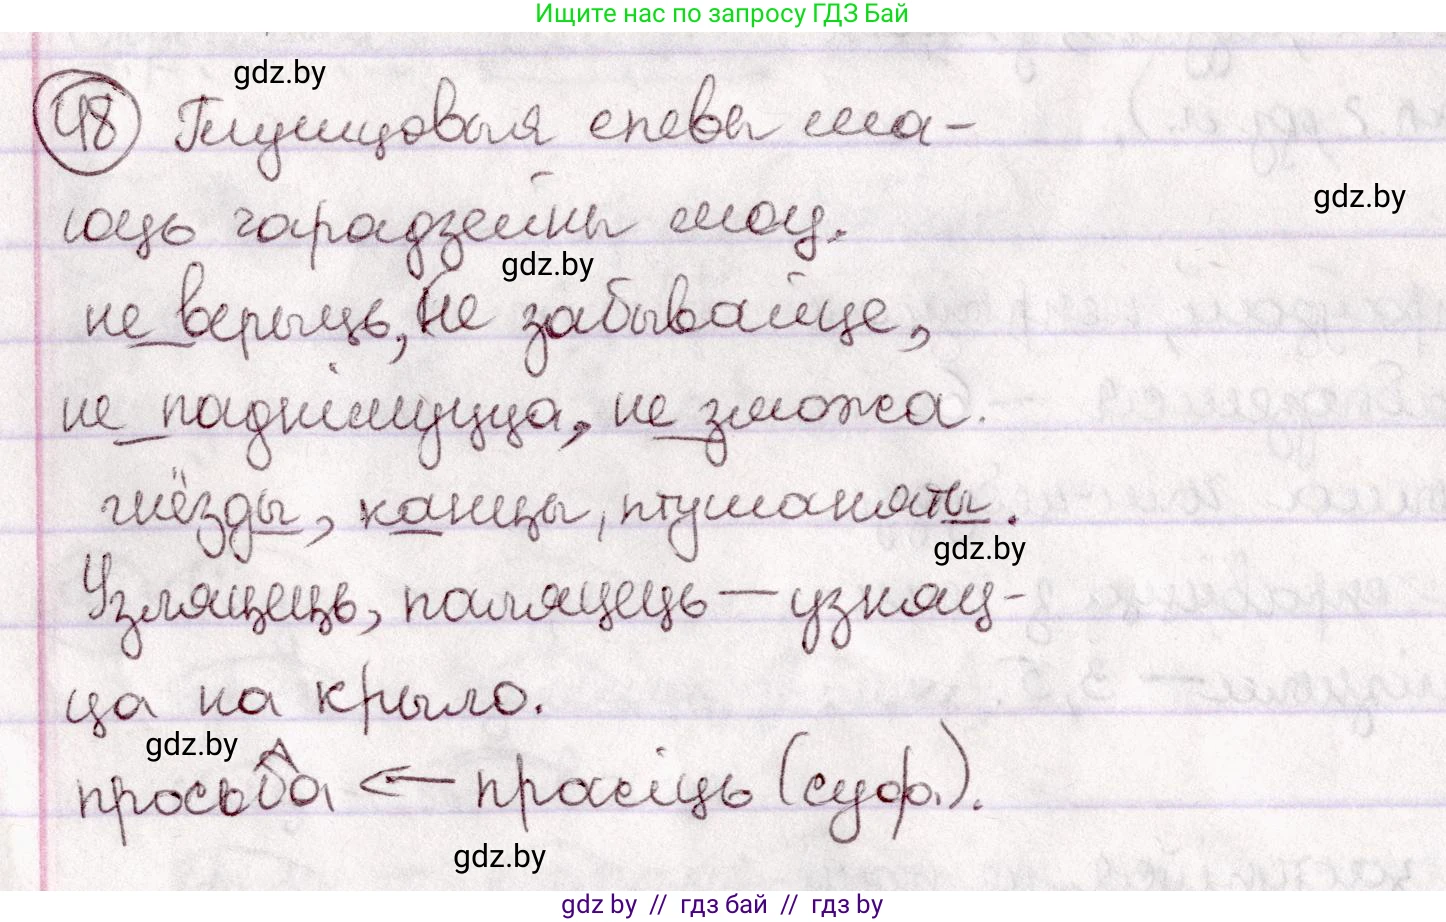 Ищите нас по запросу ГДЗ Бай
gdz.by
48 Глушцовыя спевы ма-
юць чарадзейны моц.
gdz.by
gdz.by
не верыць, не забывайце,
не паднімуцца, не зможа.
гнёзды, канцы, птушаняты.
gdz.by
Узляцець, паляцець — узняц-
ца на крыло.
gdz.by
просьба ← прасіць (суф.).
gdz.by
gdz by // гдз бай // гдз by